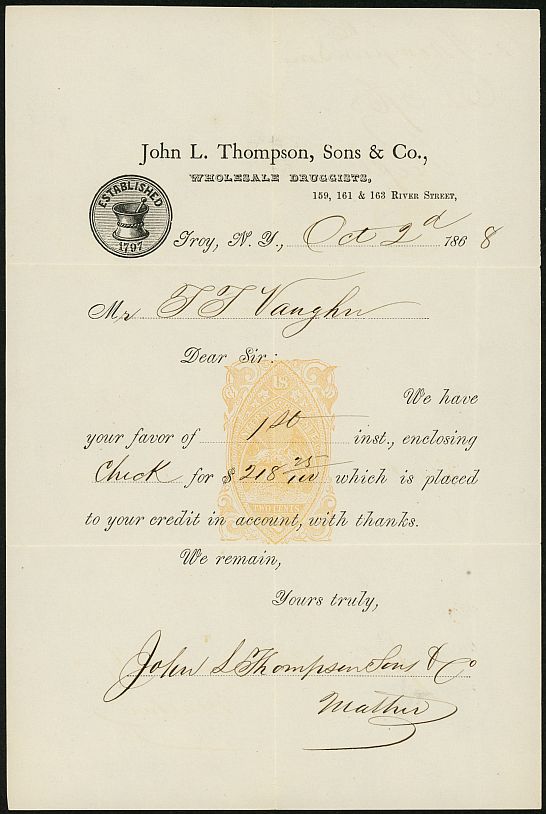 John L. Thompson, Sons & Co.,
WHOLESALE DRUGGISTS,
159, 161 & 163 River Street,
ESTABLISHED
1797
Troy, N. Y., Oct 2d 1868
Mr T T Vaughn
Dear Sir:
We have
your favor of 1st inst., enclosing
Check for $218 25/100 which is placed
to your credit in account, with thanks.
We remain,
Yours truly,
John L Thompson Sons & Co
Mather
U S
TWO CENTS